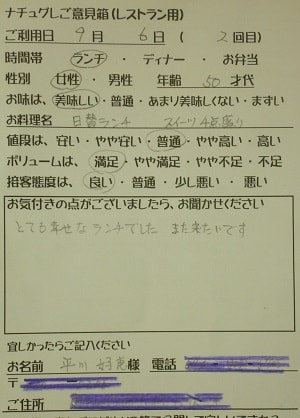 ナチュグレご意見箱(レストラン用)
ご利用日 9月 6日( 2回目)
時間帯 ランチ・ディナー・お弁当
性別 女性・男性 年齢 50才代
お味は、美味しい・普通・あまり美味しくない・まずい
お料理名 日替ランチ スイーツ4点盛り
値段は、安い・やや安い・普通・やや高い・高い
ボリュームは、満足・やや満足・やや不足・不足
接客態度は、良い・普通・少し悪い・悪い
お気付きの点がございましたら、お聞かせください
とても幸せなランチでした また来たいです
宜しかったらご記入ください
お名前 平川 様 電話
〒
ご住所